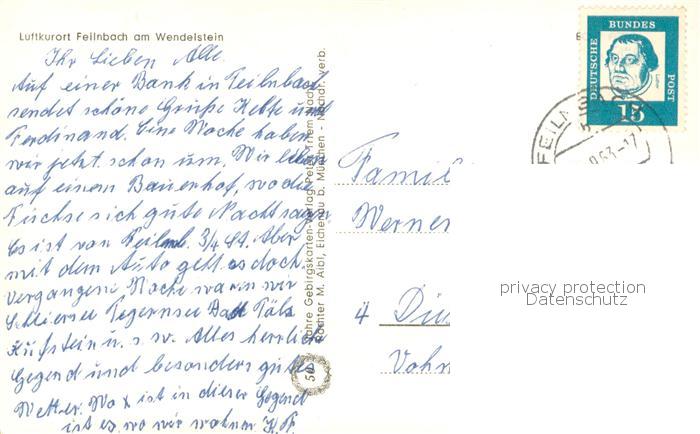 Luftkurort Feilnbach am Wendelstein
Ihr Lieben Alle.
Auf einer Bank in Feilnbach
sendet schöne Grüße Kette und
Ferdinand. Eine Woche haben
wir jetzt schon um. Wir leben
auf einem Bauernhof, wo die
Füchse sich gute Nacht sagen
Es ist von Feilnb. 3/4 Std. Aber
mit dem Auto geht es doch.
Vergangene Woche waren wir
Schliersee Tegernsee Bad Tölz
Kufstein u. s. w. Alles herrliche
Gegend und besonders gutes
Wetter. Wo x ist in dieser Gegend
ist es, wo wir wohnen
Jahre Gebirgskarten-Verlag
M. Aibl, Eichenau b. München - Nachdr. verb.
50
DEUTSCHE
BUNDES
POST
15
FEILNB
63-17
Famil
Werner
4
Vohw
privacy protection
Datenschutz